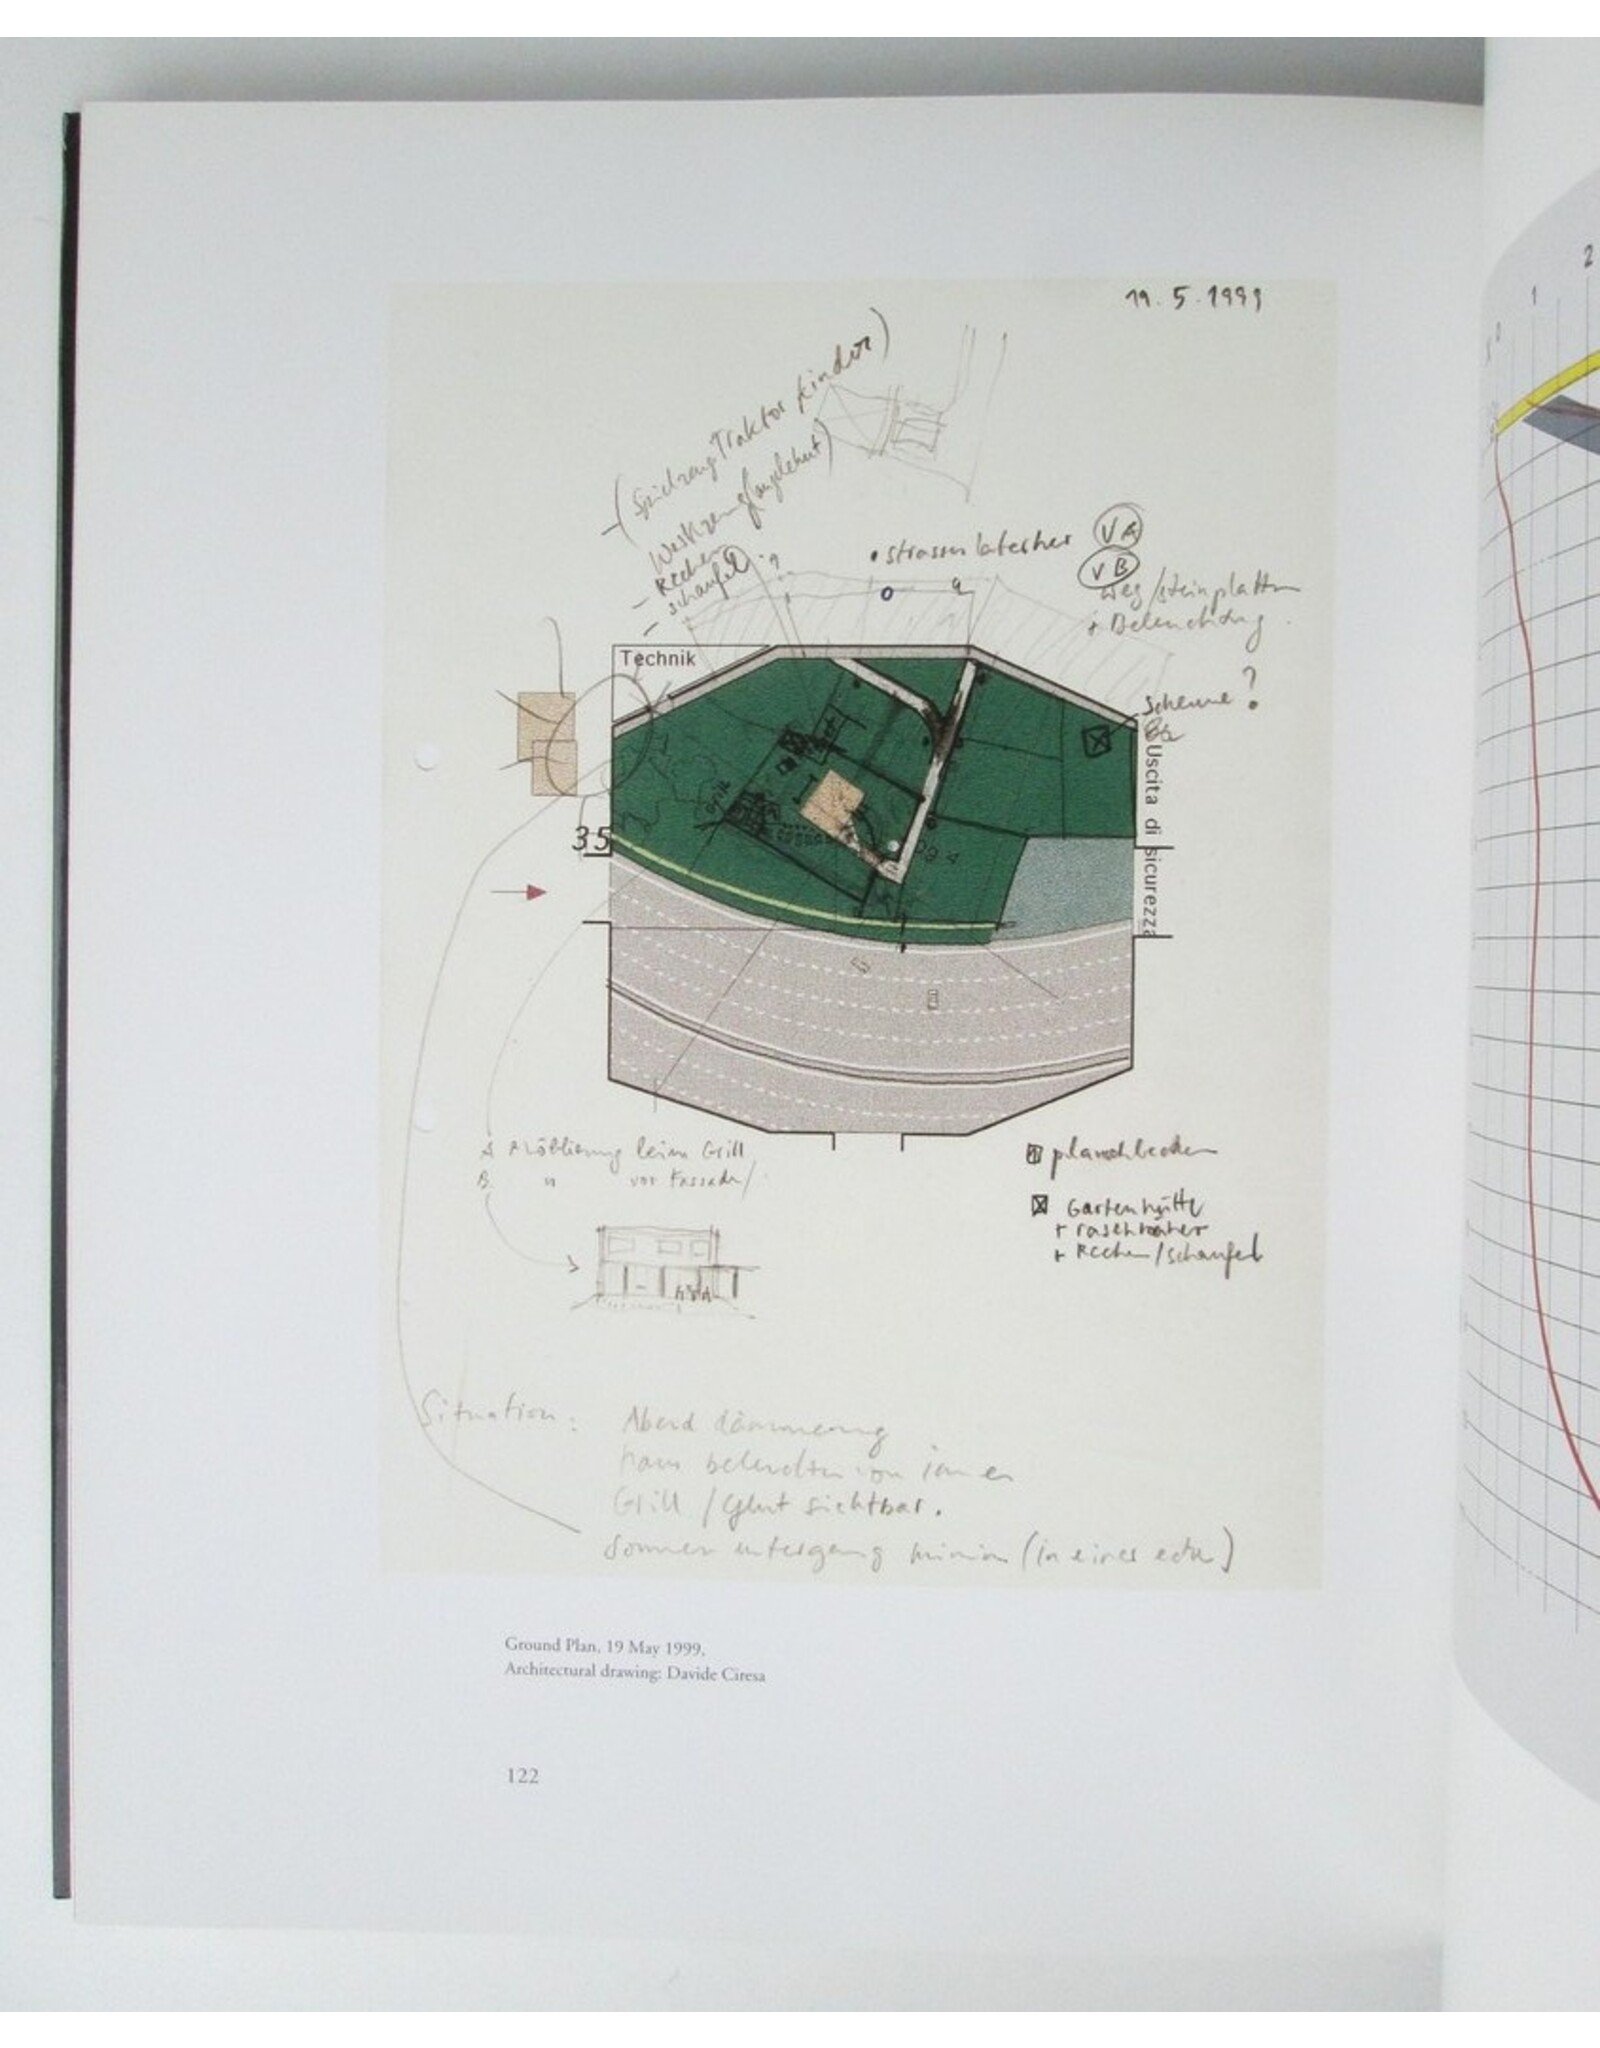 19.5.1999
(Spielzeug Traktor Kinder)
Werkzeug (angelehnt)
- Rechen
- Schaufel ?
• strassenlaternen VA
VB
weg/steinplatten
+ Beleuchtung
Technik
Scheune ?
Grill
35
Uscita di sicurezza
A Möblierung beim Grill
B " vor Fassade/
planschbecken
Gartenhütte
+ rasenmäher
+ Rechen/schaufel
Situation: Abend dämmerung
haus beleuchtet von innen
Grill/Glut sichtbar.
Sonnen untergang minim (in einer ecke)
Ground Plan, 19 May 1999,
Architectural drawing: Davide Ciresa
122
0
1
2